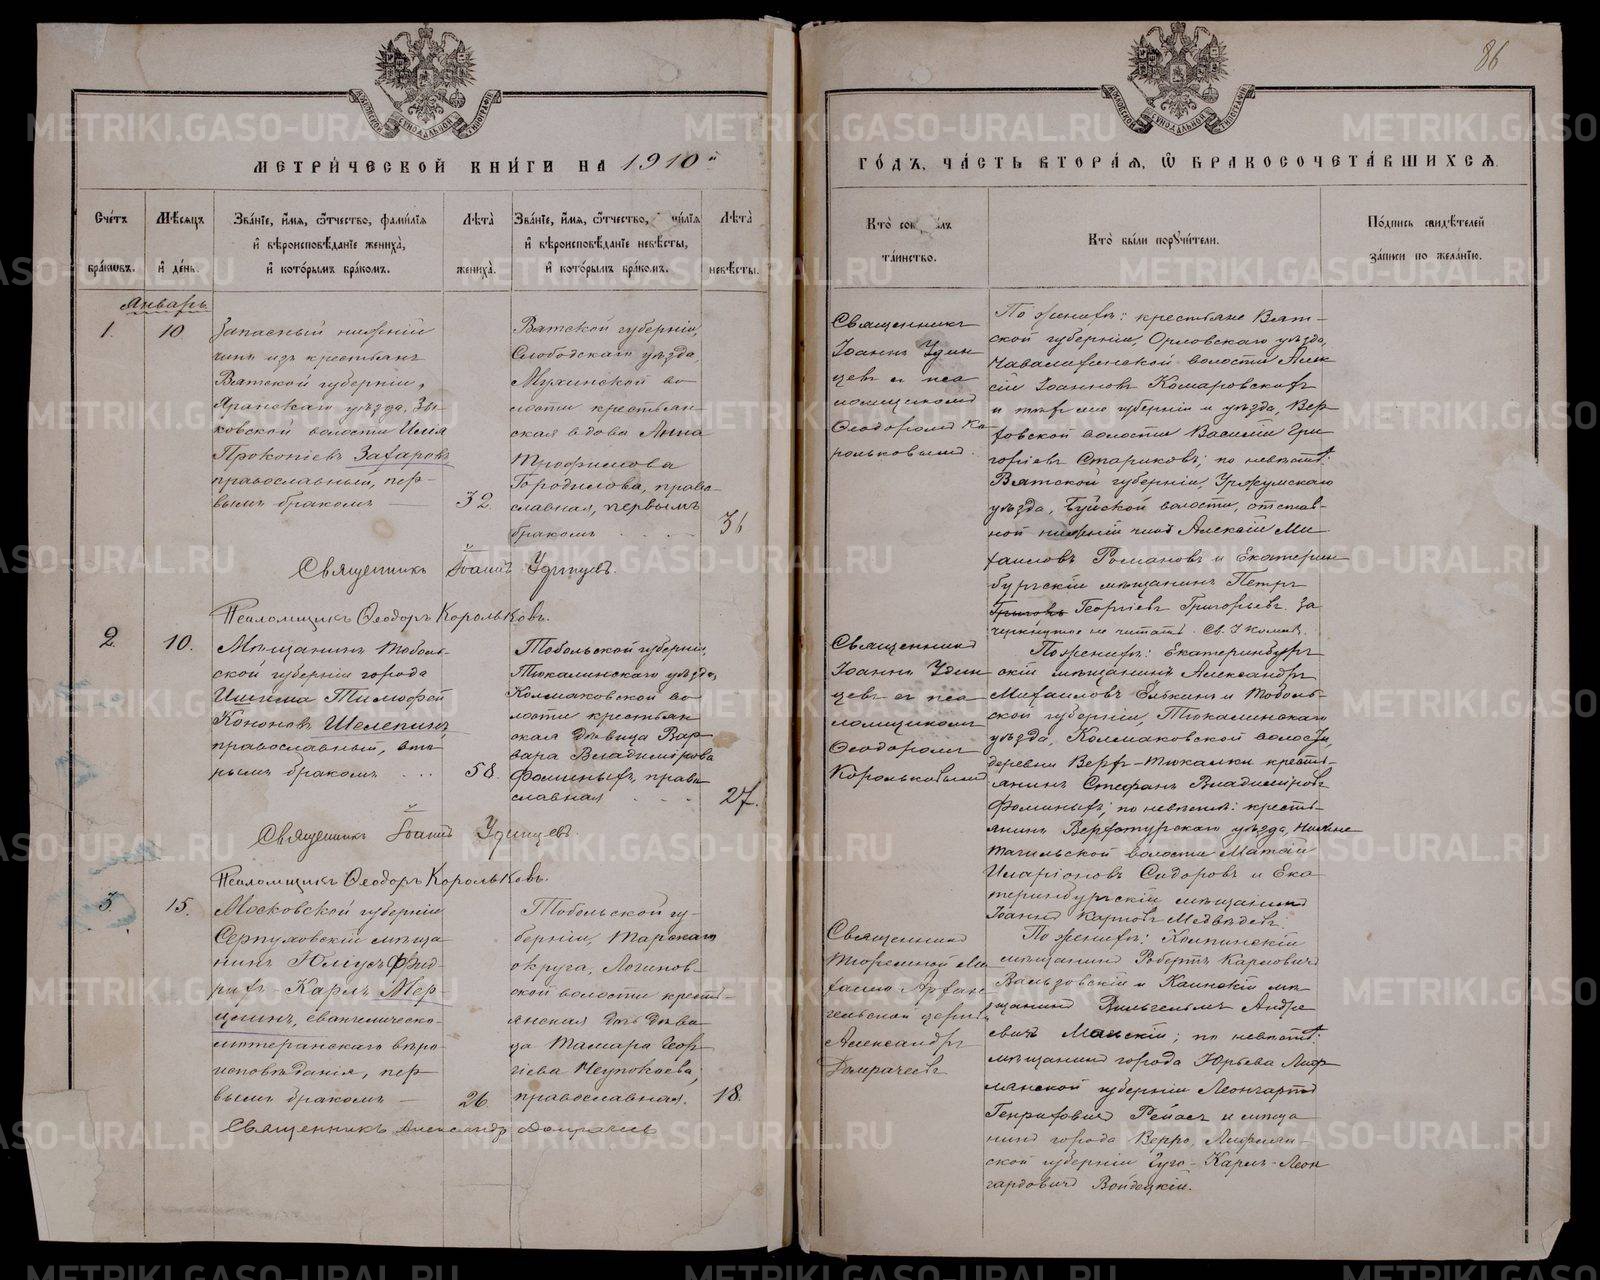 86
МЕТРИ́ЧЕСКОЙ КНИ́ГИ НА 1910й
ГО́ДЪ, ЧА́СТЬ ВТОРА́Я, Ѡ БРАКОСОЧЕТА́ВШИХСЯ
Сче́тъ бра́ковъ.
Мѣ́сяцъ и҆ де́нь.
Зва́нїе, и҆́мя, ѻ҆́тчество, фами́лїя
и҆ вѣроисповѣ́данїе жениха̀,
и҆ кото́рымъ бра́комъ.
Лѣта̀ жениха̀.
Зва́нїе, и҆́мя, ѻ҆́тчество,
и҆ вѣроисповѣ́данїе невѣ́сты,
и҆ кото́рымъ бра́комъ.
Лѣта̀ невѣ́сты.
Кто̀
та́инство.
Кто̀ бы́ли поручи́тели.
По́дпись свидѣ́телей
за́писи по жела́нїю.
Январь
1.
10.
Запасный нижній
чинъ изъ крестьянъ
Вятской губерніи,
Яранскаго уѣзда, Зы-
ковской волости Илія
Прокопіевъ Захаровъ
православный, пер-
вымъ бракомъ
32.
Вятской губерніи,
Слободскаго уѣзда,
Мухинской во-
лости крестьян-
ская вдова Анна
Трофимова
Городилова, право-
славная, первымъ
бракомъ
31
Священникъ
Іоаннъ Удин-
цевъ съ пса-
ломщикомъ
Ѳеодоромъ Ко-
рольковымъ.
По женихѣ: крестьяне Вят-
ской губерніи, Орловскаго уѣзда,
волости Алек-
сій Іоанновъ Комаровскихъ
и той же губерніи и уѣзда, Вер-
ховской волости Василій Гри-
горіевъ Стариковъ; по невѣстѣ:
Вятской губерніи, Уржумскаго
уѣзда, Буйской волости, отстав-
ной нижній чинъ Алексій Ми-
хаиловъ Романовъ и Екатерин-
бургскій мѣщанинъ Петръ
Георгіевъ Григорьевъ. За-
черкнутое не читать. Св.
Священникъ Іоаннъ Удинцевъ.
Псаломщикъ Ѳеодоръ Корольковъ.
2.
10.
Мѣщанинъ Тоболь-
ской губерніи города
Ишима Тимоѳей
Кононовъ Шелепинъ,
православный, вто-
рымъ бракомъ
58.
Тобольской губерніи,
Тюкалинскаго уѣзда,
Колмаковской во-
лости крестьян-
ская дѣвица Вар-
вара Владимірова
Ѳоминыхъ, право-
славная
27.
Священникъ
Іоаннъ Удин-
цевъ съ пса-
ломщикомъ
Ѳеодоромъ
Корольковымъ
По женихѣ: Екатеринбург-
скій мѣщанинъ Александръ
Михаиловъ Елькинъ и Тоболь-
ской губерніи, Тюкалинскаго
уѣзда, Колмаковской волости,
деревни Верх-Тюкалки кресть-
янинъ Стефанъ Владиміровъ
Ѳоминыхъ; по невѣстѣ: кресть-
янинъ Верхотурскаго уѣзда, Нижне-
тагильской волости Матѳій
Иларіоновъ Сидоровъ и Ека-
теринбургскій мѣщанинъ
Іоаннъ Карповъ Медвѣдевъ.
Священникъ Іоаннъ Удинцевъ.
Псаломщикъ Ѳеодоръ Корольковъ.
3.
15.
Московской губерніи
Серпуховскій мѣща-
нинъ Юліусъ Фрид-
рихъ-Карлъ Мер-
цинъ, евангелическо-
лютеранскаго вѣро-
исповѣданія, пер-
вымъ бракомъ
26
Тобольской гу-
берніи, Тарскаго
округа, Логинов-
ской волости кресть-
янская дѣви-
ца Тамара Геор-
гіева Неупокоева,
православная.
18.
Священникъ
Тюремной Ми-
хаило-Архан-
гельской церкви
Александръ
Домрачевъ
По женихѣ: Колпинскій
мѣщанинъ Робертъ Карловичъ
Вальзовскій и Каинскій мѣ-
щанинъ Вильгельмъ Андре-
евичъ Манскій; по невѣстѣ:
мѣщанинъ города Юрьева Лиф-
ляндской губерніи Леонгартъ
Генриховичъ Рейасъ и мѣща-
нинъ города Верро, Лифлянд-
ской губерніи Гуго-Карлъ-Леон-
гардовичъ
Священникъ Александръ Домрачевъ
METRIKI.GASO-URAL.RU